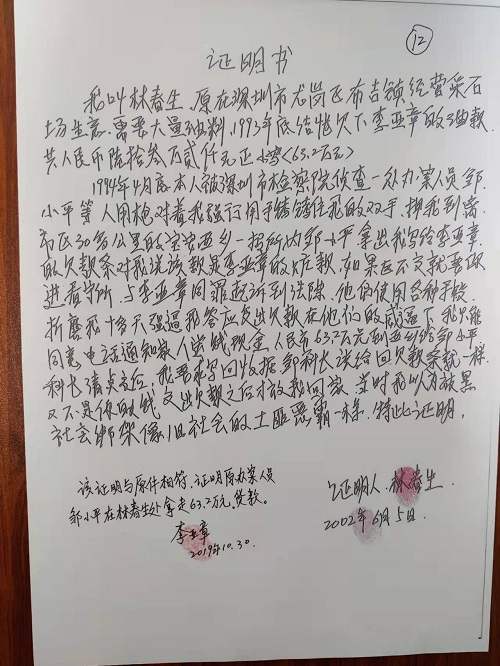 12
证明书
我叫林春生,原在深圳市龙岗区布吉镇经营采石
场生意,需要大量油料,1993年底结帐欠下李亚章的油款
共人民币陆拾叁万贰仟元正小写<63.2万元>
1994年4月底本人被深圳市检察院侦查一处办案人员邹
小平等人用枪对着我强行用手铐铐住我的双手,押我到离
市区30多公里的宝安西乡一招所内邹小平拿出我写给李亚章
的欠款条对我说该款是李亚章的赃款,如果在不交就要改
进看守所,与李亚章同罪起诉到法院,他们使用各种手段
折磨我十多天强逼我答应交出欠款在他们的威逼下我只能
同意电话通知家人送钱现金人民币63.2万元到西乡给邹小平
科长清点之后,我要求写回收据邹科长说给回欠款条就一样
又不是收取钱交出欠款之后才放我回家当时我以为放黑
社会绑架像旧社会的土匪恶霸一样.特此证明.
该证明与原件相符.证明原办案人员
邹小平在林春生处拿走63.2万元.货款。
李亚章
2019.10.30.
证明人.林春生.
2002年6月5日.